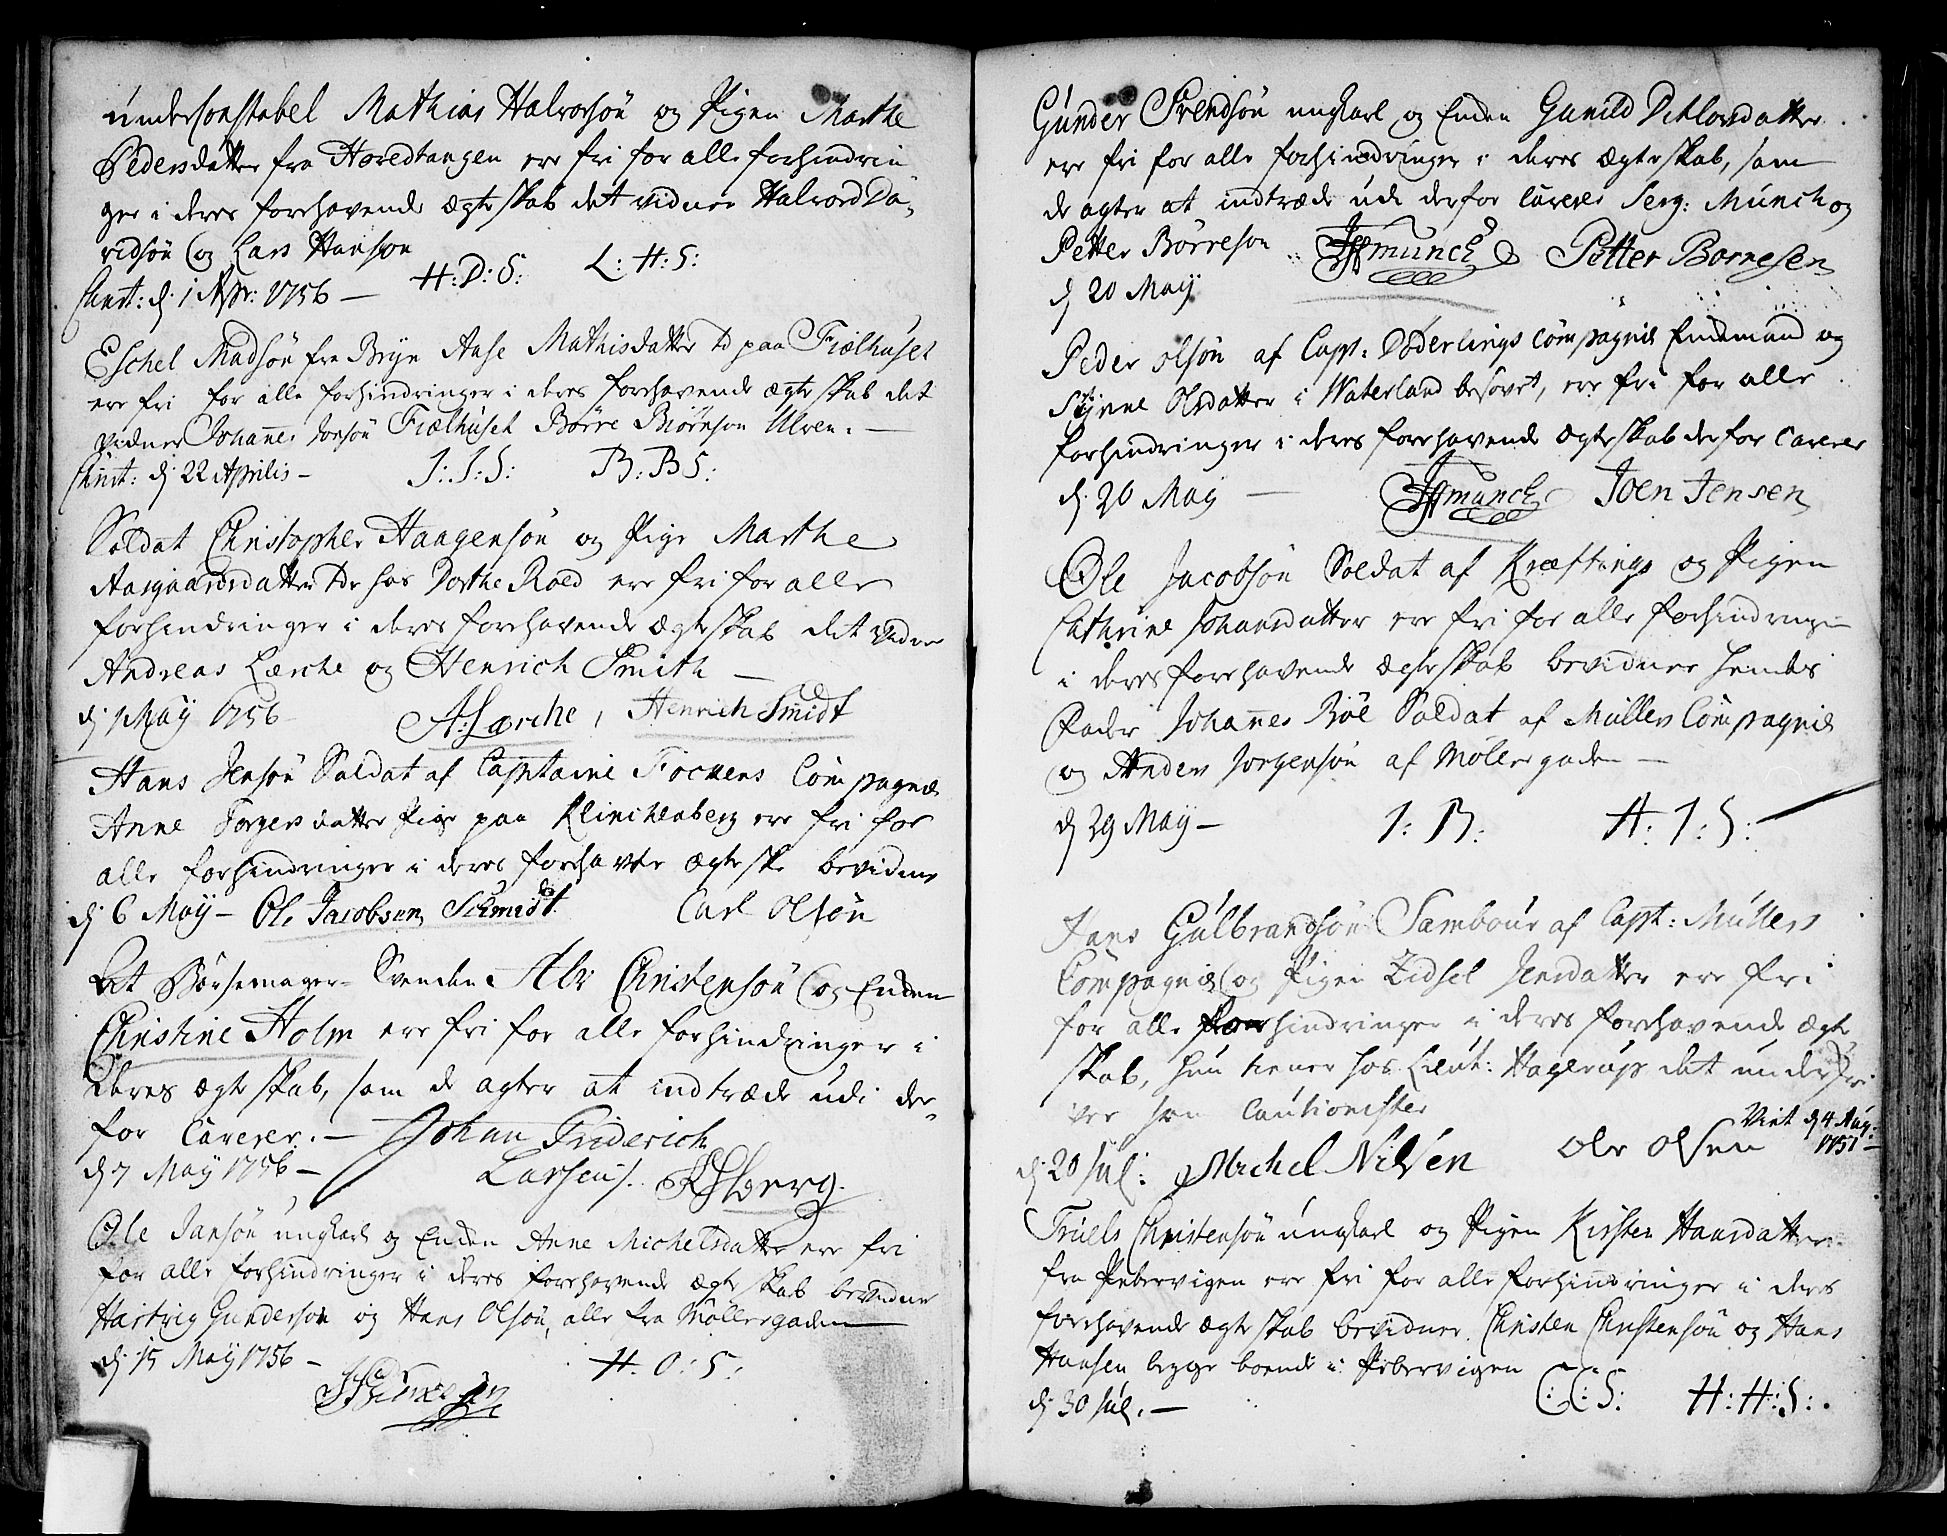 Underconstabel Mathias Halvorsøn og Pigen Marthe
Pedersdatter fra Hovedtangen ere fri for alle forhindrin
ger i deres forehavende Ægteskab det vidner Halvord Da,,
vidsøn og Lars Hansøn
Christ: d: 1 Apr: 1756 — H:D:S: L:H:S:
Eschel Madsøn fra Bryn Aase Mathisdatter td paa Fiælhuset
ere fri for alle forhindringer i deres forehavende ægteskab det
vidner Johannes Jonsøn Fiælhuset Børre Biørnson Ulven. —
Christ: d: 22 Aprilis — J:J:S: B:B:S:
Soldat Christopher Haagensøn og Pige Marthe
Aasgaardsdatter hos Dorthe Roed ere fri for alle
forhindringer i deres forehavende Ægteskab det vidner
Andreas Lærche og Henrich Smith —
d: 1 May 1756 A: Lærche, Henrich Smidt
Hans Jensøn Soldat af Captaine Fockens Compagnie
Anne Torgersdatter Pige paa Klinchenberg ere fri for
alle forhindringer i deres ægtesk bevidner
d: 6 May — Ole Jacobsen Schmidt. Carl Olsøn
At Børsemager-Svenden Christensøn og Enken
Christine Holm ere fri for alle forhindringer i
deres ægteskab, som de agter at indtræde udi der,,
for Caverer. — Johan Friderich
d: 7 May 1756 — Larsen
Ole Jansøn ungkarl og Enken Anne Michelsdatter ere fri
for alle forhindringer i deres forehavende ægteskab bevidner
Hartvig Gundersøn og Hans Olsøn, alle fra Møllergaden
d: 15 May 1756 — H:O:S:
Gunder Svendsøn ungkarl og Enken Gunild Ditlovsdatter
ere fri for alle forhindringer i deres Ægteskab, som
de agter at indtræde udi derfor caverer Serg: Munch og
Petter Børreson Munch Petter Børresen
d: 20 May
Peder Olsøn af Capt: Døderlings Compagnie Enkemand og
Synne Olsdatter i Waterland besovet, ere fri for alle
forhindringer i deres forehavende ægteskab derfor caverer
d: 20 May — Munch Joen Jensen
Ole Jacobsøn Soldat af Kræftings og Pigen
Cathrine Johansdatter ere fri for alle forhindringer
i deres forehavende ægteskab bevidner hendes
Fader Johannes Bøe Soldat af Müllers Compagnie
og Anders Jorgensøn af Møllergaden —
d: 29 May — J:B: A:J:S:
Hans Gulbrandsøn Tambour af Capt: Müllers
Compagnie og Pigen Zidsel Jensdatter ere fri
for alle forhindringer i deres forehavende ægte
skab, hun tiener hos Lieut: Hagerup det underskri
ver som Cautionister
d: 20 Jul: Michel Nilsen Ole Olsen Viet d: 4 Aug: 1751 —
Truels Christensøn ungkarl og Pigen Kirsten Hansdatter
fra Pebervigen ere fri for alle forhindringer i deres
forehavende ægteskab bevidner Christen Christensøn og Hans
Hansen begge boende i Pebervigen
d: 30 Jul. — C:C:S: H:H:S: